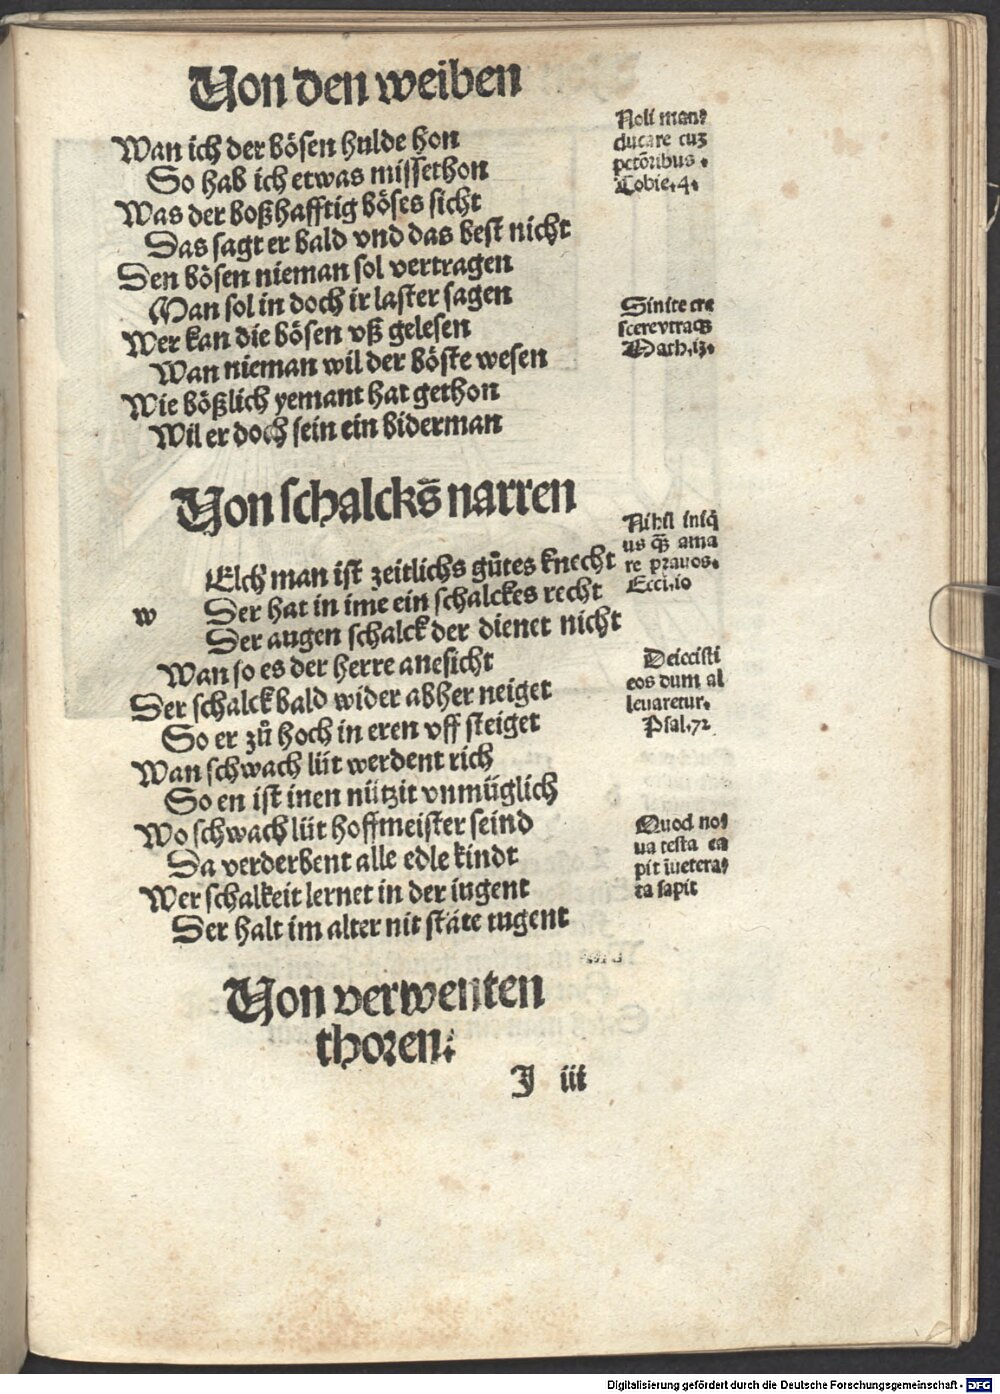 Von den weiben
Wan ich der bösen hulde hon
So hab ich etwas missethon
Was der boßhafftig böses sicht
Das sagt er bald vnd das best nicht
Den bösen nieman sol vertragen
Man sol in doch ir laster sagen
Wer kan die bösen vß gelesen
Wan nieman wil der böste wesen
Wie bößlich yemant hat gethon
Wil er doch sein ein biderman
Noli man⸗
ducare cuʒ
pctōribus .
Tobie.4.
Sinite cre
scere vtraqʒ
Math.iʒ.
Von schalcks̄ narren
w
Elch man ist zeitlichs gůtes knecht
Der hat in ime ein schalckes recht
Der augen schalck der dienet nicht
Wan so es der herre anesicht
Der schalck bald wider abher neiget
So er zů hoch in eren vff steiget
Wan schwach lüt werdent rich
So en ist inen nützit vnmüglich
Wo schwach lüt hoffmeister seind
Da verderbent alle edle kindt
Wer schalkeit lernet in der iugent
Der halt im alter nit stäte tugent
Nihil iniq̄
us qʒ̄ ama
re prauos.
Eccl.io
Deiecisti
eos dum al
leuaretur.
Psal.72
Quod no⸗
ua testa ca
pit īuetera⸗
ta sapit
Von verwenten
thoren.
J iii
Digitalisierung gefördert durch die Deutsche Forschungsgemeinschaft - DFG